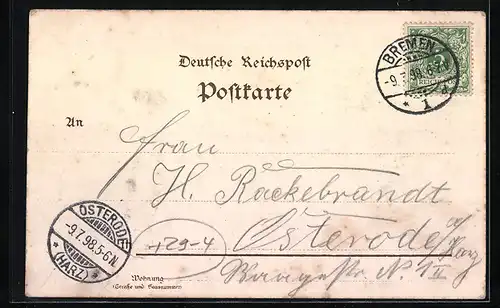 Deutsche Reichspost
Postkarte
BREMEN
-9.7.98.
* 1
An
Frau
H. Rackebrandt
Osterode a/Harz
N.
OSTERODE
-9.7.98.5-6N.
* (HARZ) *
+29-4
Wohnung
(Straße und Hausnummer)